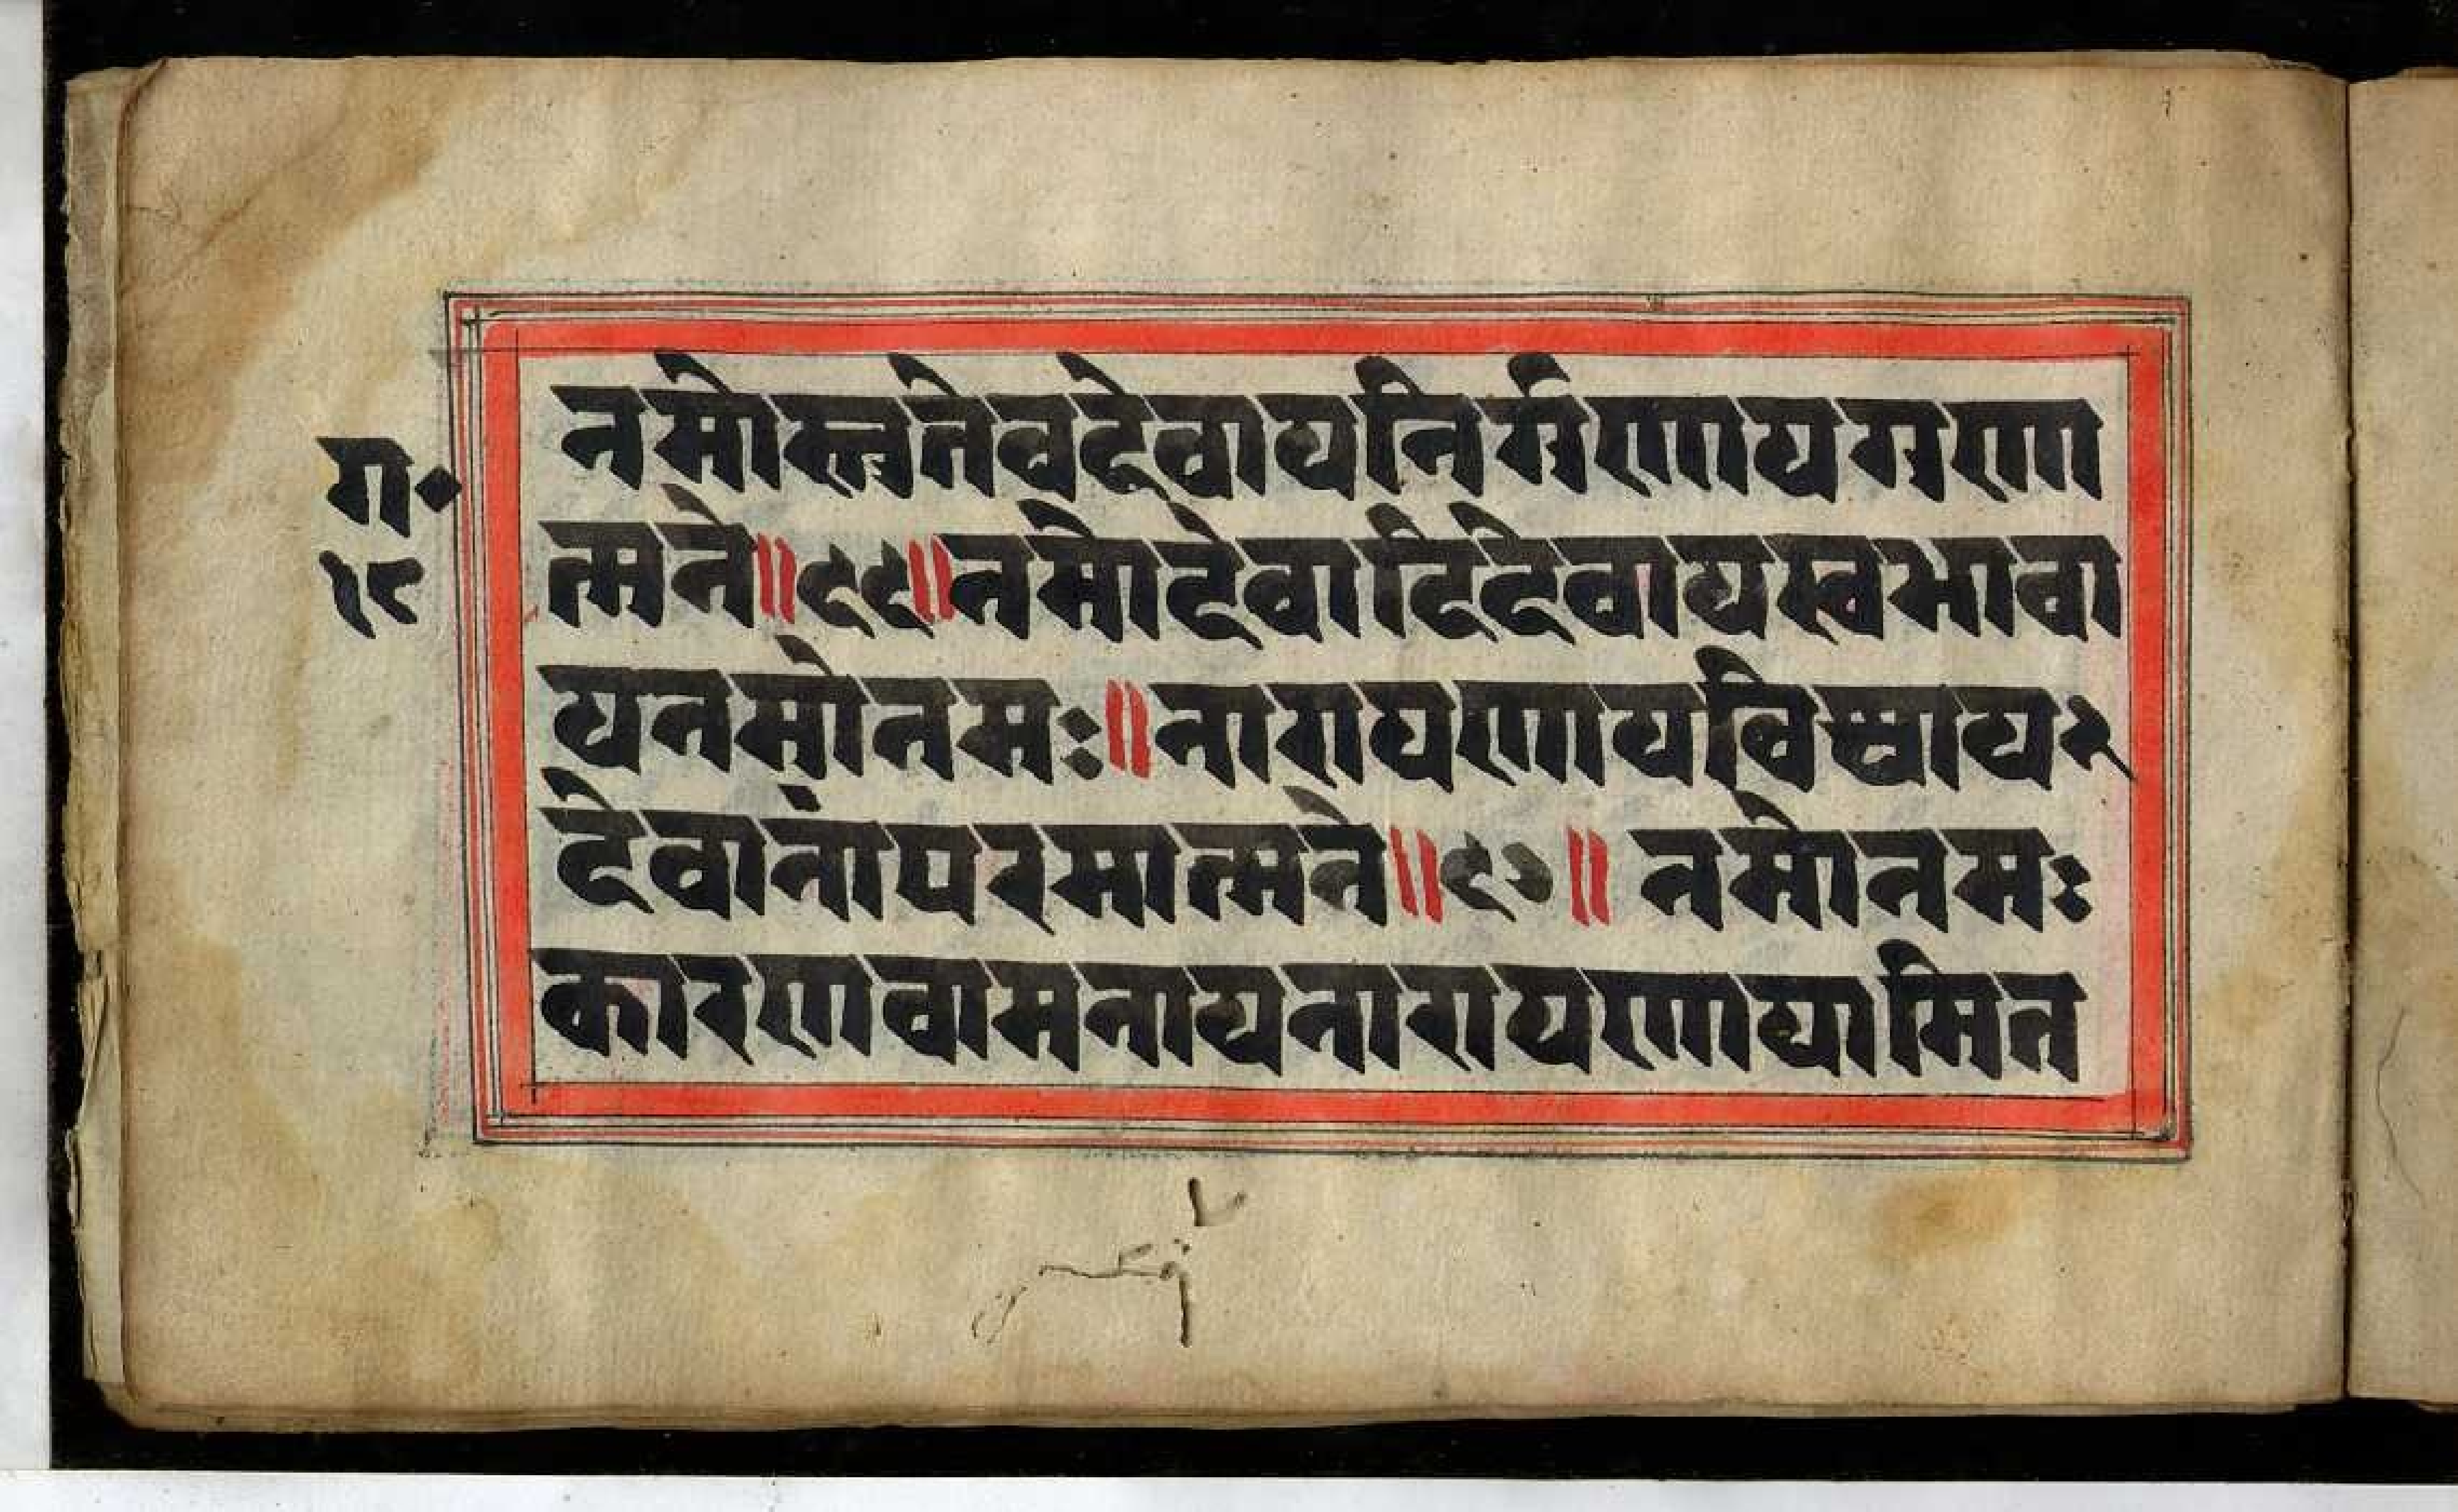 ग॰
१८
नमोस्तुतेवदेवायनिर्गुणायगुणा
त्मने॥९९॥नमोदेवादिदेवायस्वभावा
यनमोनमः॥नारायणायविश्वायर
देवानांपरमात्मने॥९७॥नमोनमः
कारणवामनायनारायणायामित